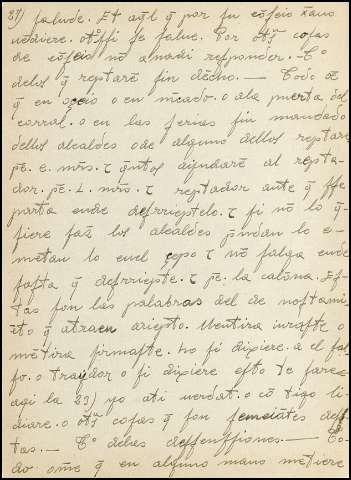 falude. Et aq̃l q̃ por fu cõfeio
uẽdiere. otⁱoffi fe falue. Por otᵃs cofas
de cõfeio nõ a nadi refponder. – Cº
delos q̃ reptarẽ fin dr̃cho. — Todo oẽ
q̃ en o en mr̃cado. o ala puerta del
corral. o en las ferias fin mandado
delos alcaldes o de alguno dellos reptare
pẽ. e. mr̃s. τ q̃ntos aiudarẽ al repta-
dor. pẽ. L. mr̃s. τ reptador ante q̃ ffe
parta ende defrrieptelo. τ fi nõ lo q̃-
fiere faz̃ los alcaldes p̃ndan lo e
metan lo enel çepo τ nõ falga ende
fafta q̃ defrriepte. τ pẽ. la calõna. Ef-
tas fon las palabras del de noftami
ẽto q̃ atraen ariepto. Mentira
mẽtira firmafte. no fi dixiere. a el fal-
fo. o traydor o fi dixiere efto te fare
aqi la yo ati uerdat. o cõ tigo li-
diare. o otᵃs cofas q̃ fon femeiãtes def
tas. — Cº delas deffenffiones. — To-
do ome q̃ en alguno mano metiere